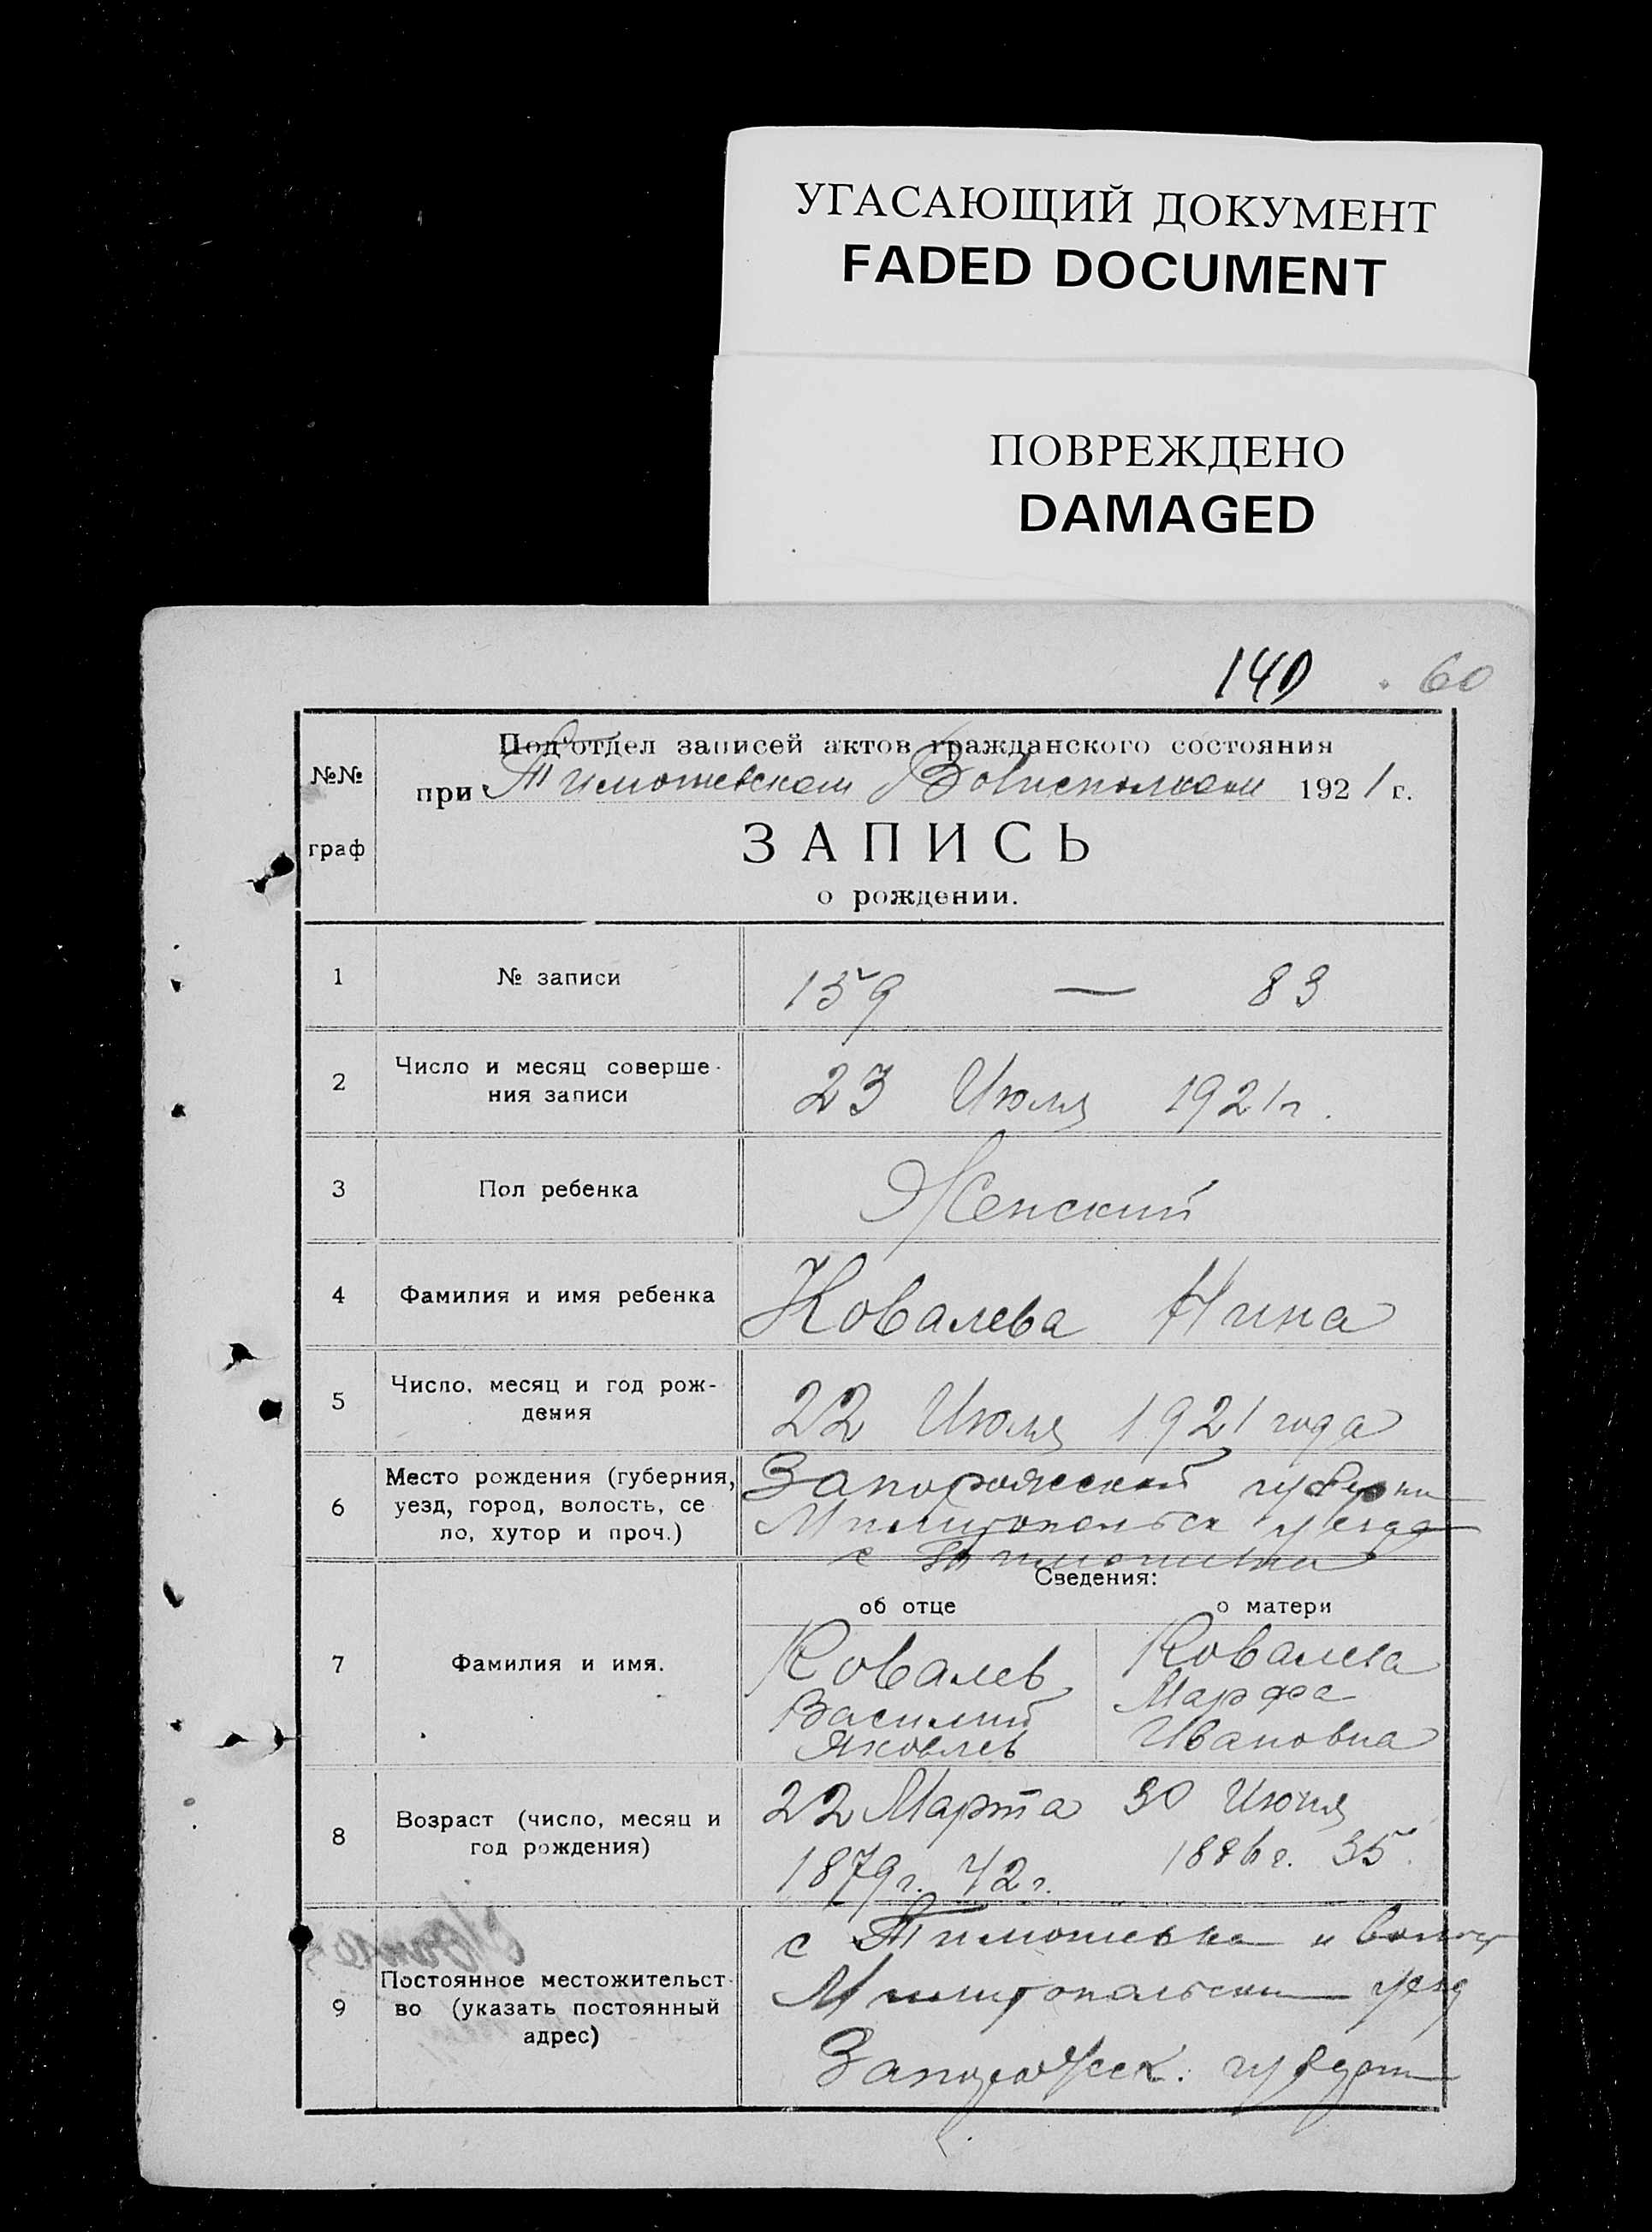 УГАСАЮЩИЙ ДОКУМЕНТ
FADED DOCUMENT
ПОВРЕЖДЕНО
DAMAGED
140 60
№№ граф
Под'отдел записей актов гражданского состояния
при Тимошевском Волисполкоме 1921 г.
ЗАПИСЬ
о рождении.
1 № записи 159 — 83
2 Число и месяц соверше-
ния записи 23 Июля 1921 г.
3 Пол ребенка Женский
4 Фамилия и имя ребенка Ковалева Нина
5 Число, месяц и год рож-
дения 22 Июля 1921 года
6 Место рождения (губерния,
уезд, город, волость, се
ло, хутор и проч.)
Запорожской губерни
Милитопольск уезда
с Тимошевка
Сведения:
об отце о матери
7 Фамилия и имя.
Ковалев
Василий
Яковлев
Ковалева
Марфа
Ивановна
8 Возраст (число, месяц и
год рождения)
22 Марта
1879 г. 42 г.
30 Июня
1886 г. 35.
9 Постоянное местожительст-
во (указать постоянный
адрес)
с Тимошевка и
Милитопольски уезд
Запорожск.